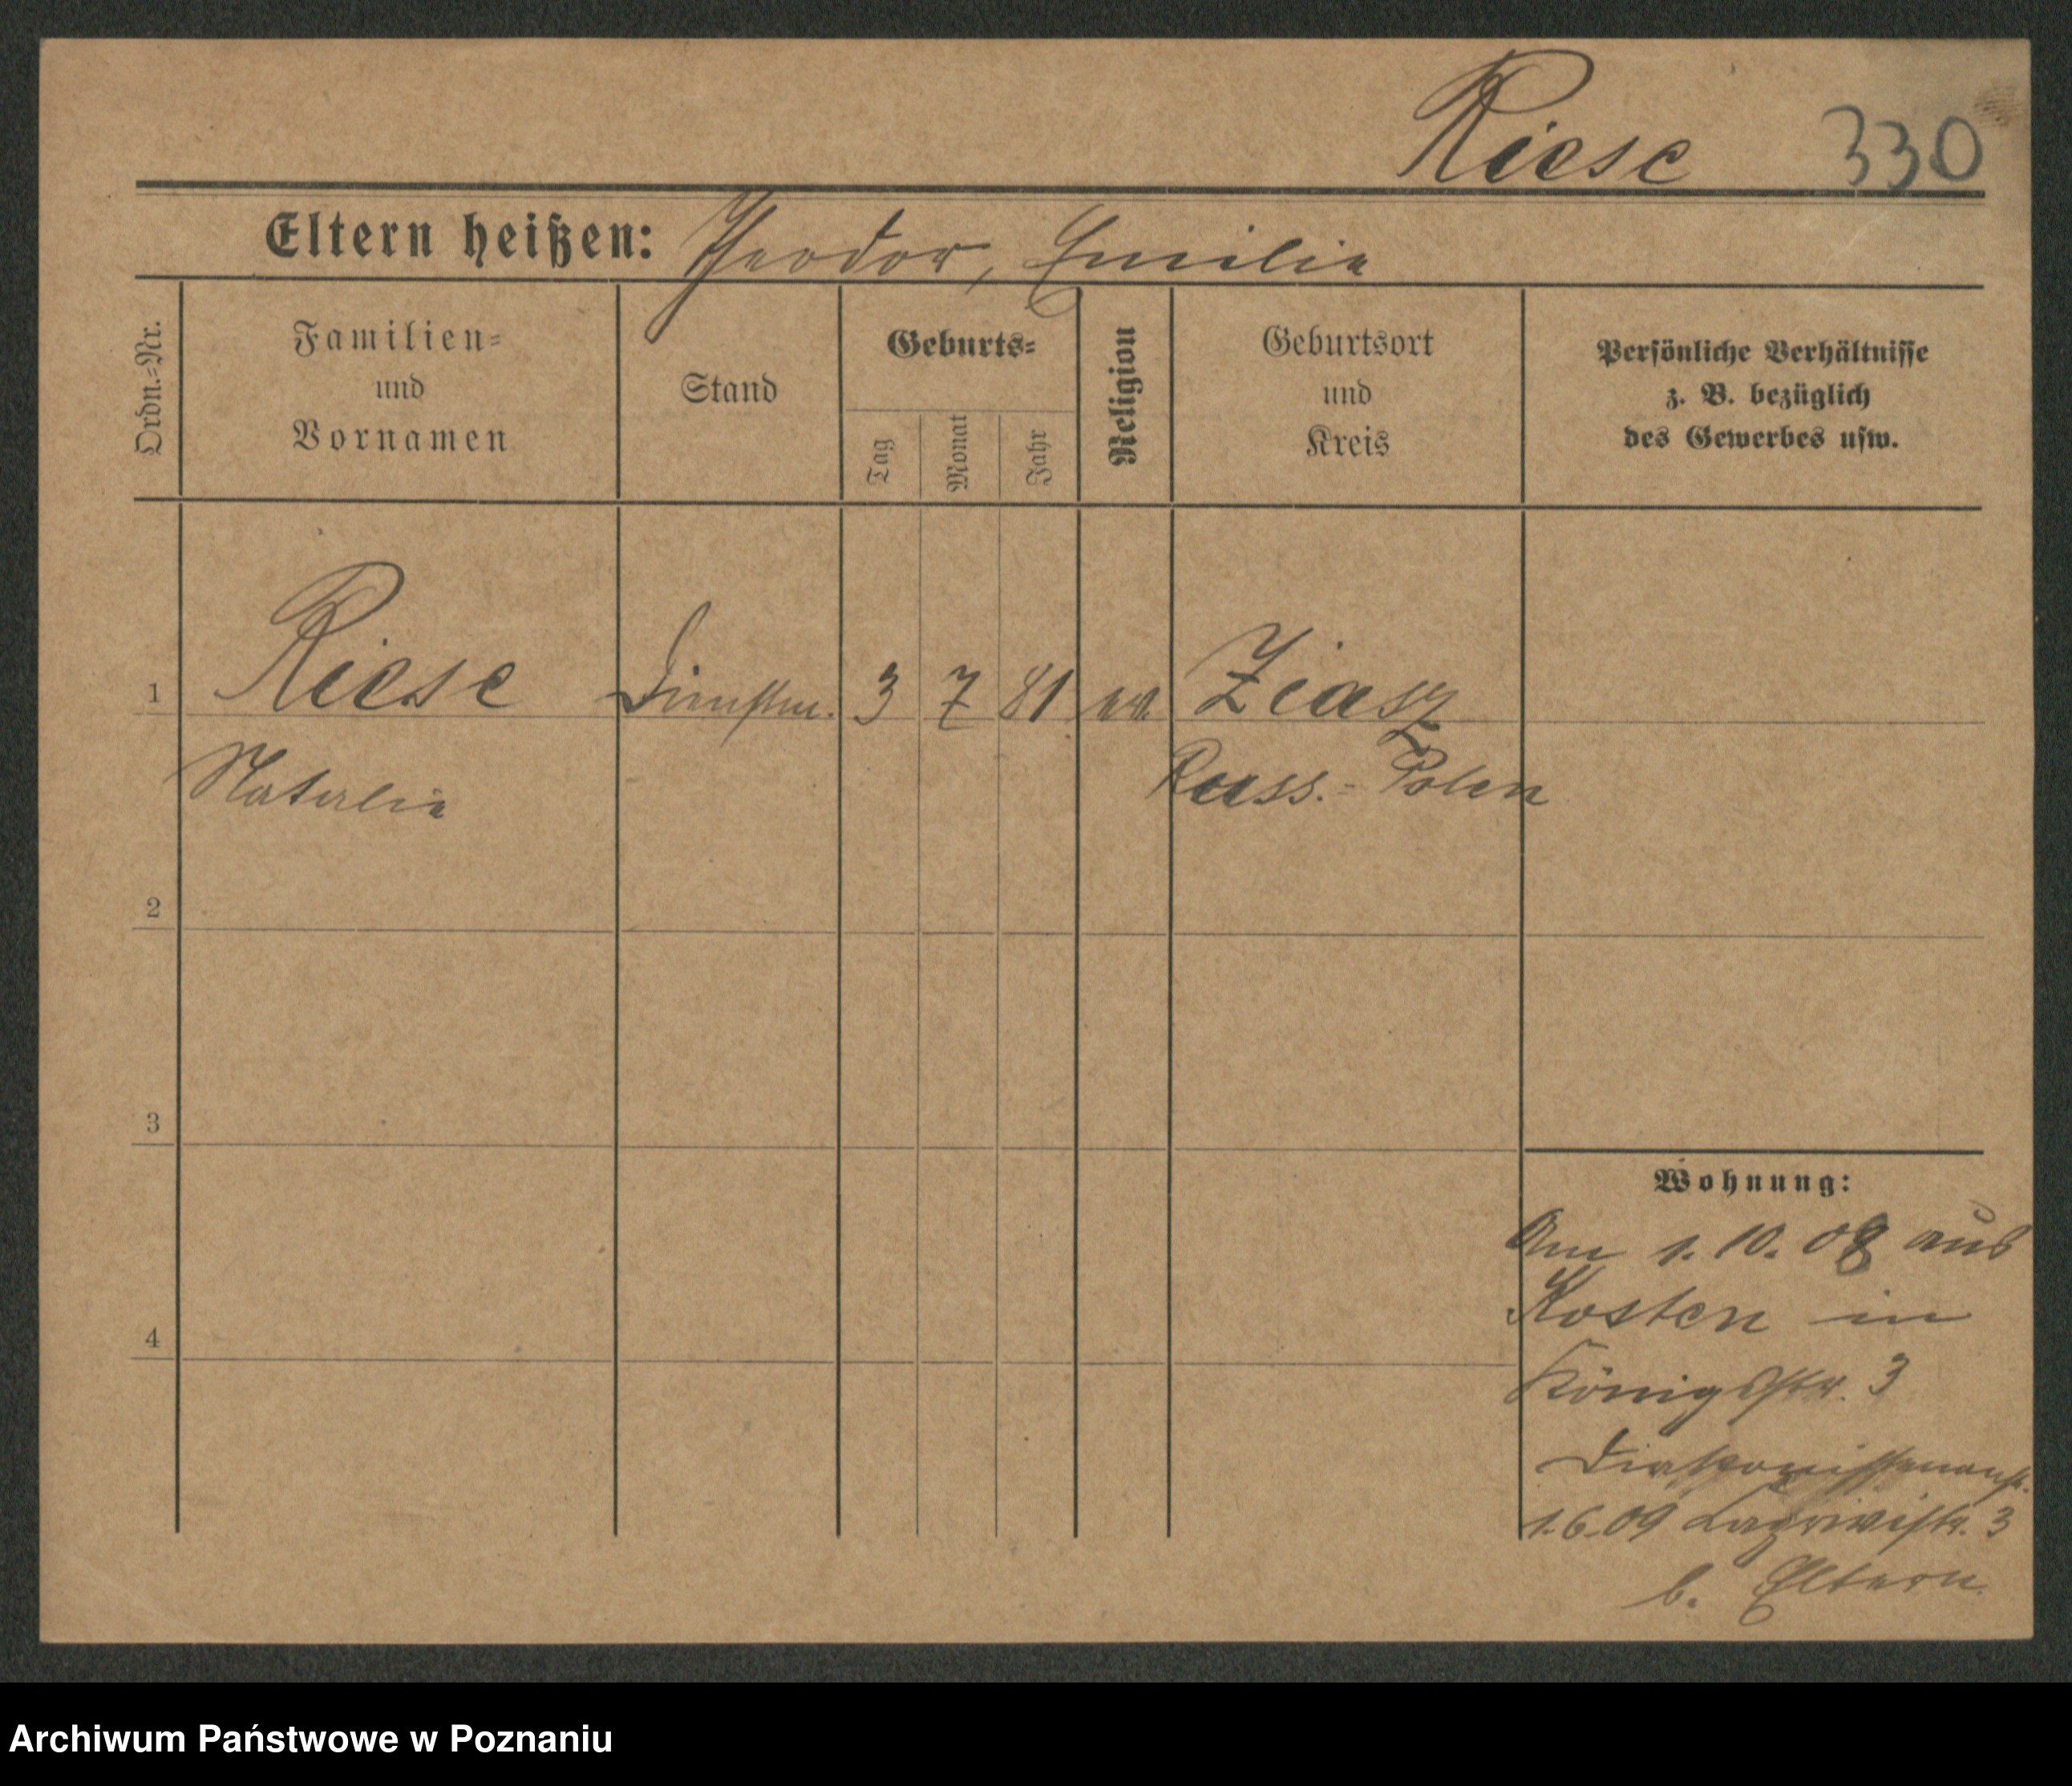 Riese 330
Eltern heißen: Theodor, Emilie
Ordn.-Nr.
Familien-
und
Vornamen
Stand
Geburts-
Tag
Monat
Jahr
Religion
Geburtsort
und
Kreis
Persönliche Verhältnisse
z. B. bezüglich
des Gewerbes usw.
1 Riese Dienstm. 3 7 81 ev. Ziasz
Natalie Russ.-Polen
2
3
4
Wohnung:
Am 1.10.08 aus
Kosten in
Königstr. 3
Diakonissenanst.
1.6.09 3
b. Eltern.
Archiwum Państwowe w Poznaniu